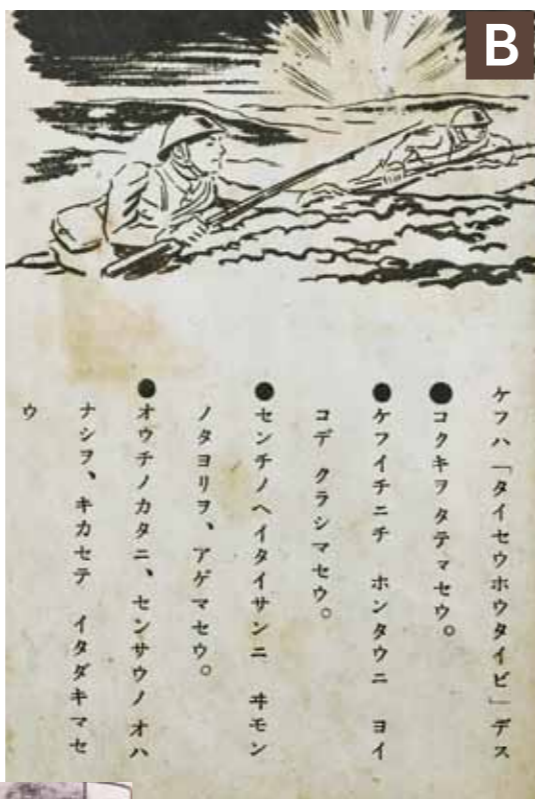 B
ケフハ「タイセウホウタイビ」デス
●コクキヲタテマセウ。
●ケフイチニチ ホンタウニ ヨイ
コデ クラシマセウ。
●センチノヘイタイサンニ ヰモン
ノタヨリヲ、アゲマセウ。
●オウチノカタニ、センサウノ オハ
ナシヲ、キカセテ イタダキマセ
ウ